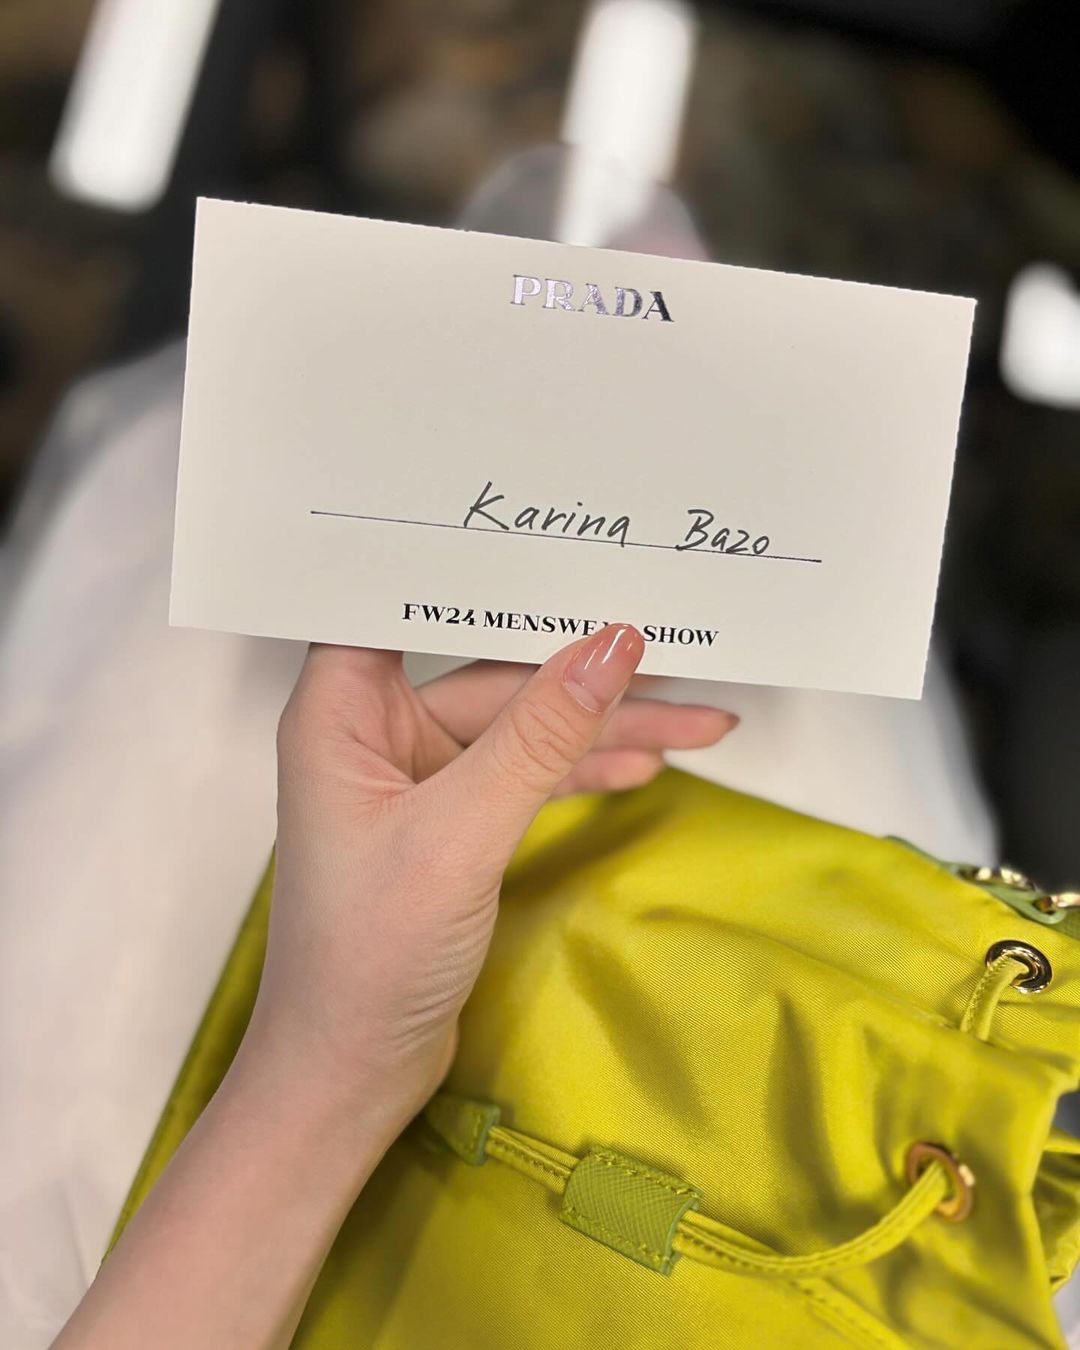 PRADA
Karina Bazo
FW24 MENSWEAR SHOW